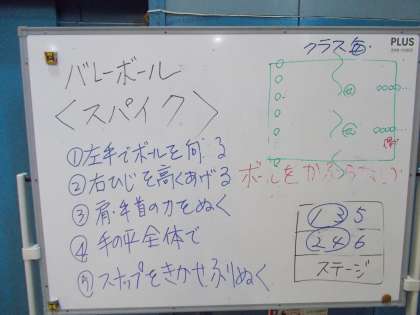 PLUS
クラス毎
バレーボール
<スパイク>
①左手でボールを
②右ひじを高くあげる
③肩・手首の力をぬく
④手の平全体で
⑤スナップをきかせふりぬく
ボールを
1 3 5
2 4 6
ステージ